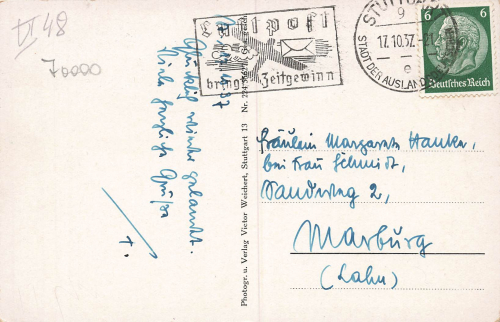 VI 48
70000
Luftpost
bringt Zeitgewinn
STUTTGART
9
17.10.37.-21
e
STADT DER AUSLAND
6 6
Deutsches Reich
37
Glücklich wieder gelandet.
Viele herzliche Grüße
Photogr. u. Verlag Victor Weichert, Stuttgart 13 Nr. 224
Fräulein Margarete Hanke,
bei Frau Schmidt,
Sandweg 2,
Marburg
(Lahn)